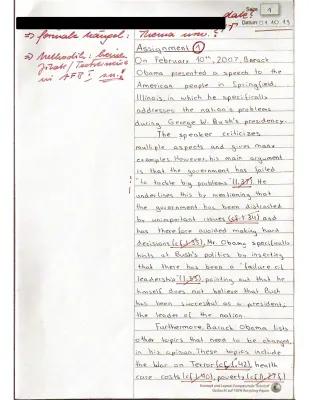 Seite 1
date!
Datum 01.10.13
=> formale Mängel: Thema usw.!
=> Methodik:
in AFB I
Assignment 1
On February 10th, 2007, Barack
Obama presented a speech to the
American people in Springfield,
Illinois, in which he specifically
addresses the nation's problems
during George W. Bush's presidency.
The speaker criticizes
multiple aspects and gives many
examples. However, his main argument
is that the government has failed
"to tackle big problems" (l.37). He
underlines this by mentioning that
the government has been distracted
by unimportant issues (cf. l.34) and
has therefore avoided making hard
decisions (cf. l.35). Mr. Obama specifically
hints at Bush's politics by inserting
that there has been a "failure of
leadership" (l.33), pointing out that he
himself does not believe that Bush
has been successful as a president,
the leader of the nation.
Furthermore, Barack Obama lists
other topics that need to be changed,
in his opinion. These topics include
the War on Terror (cf. l.42), health
care costs (cf. l.40), poverty